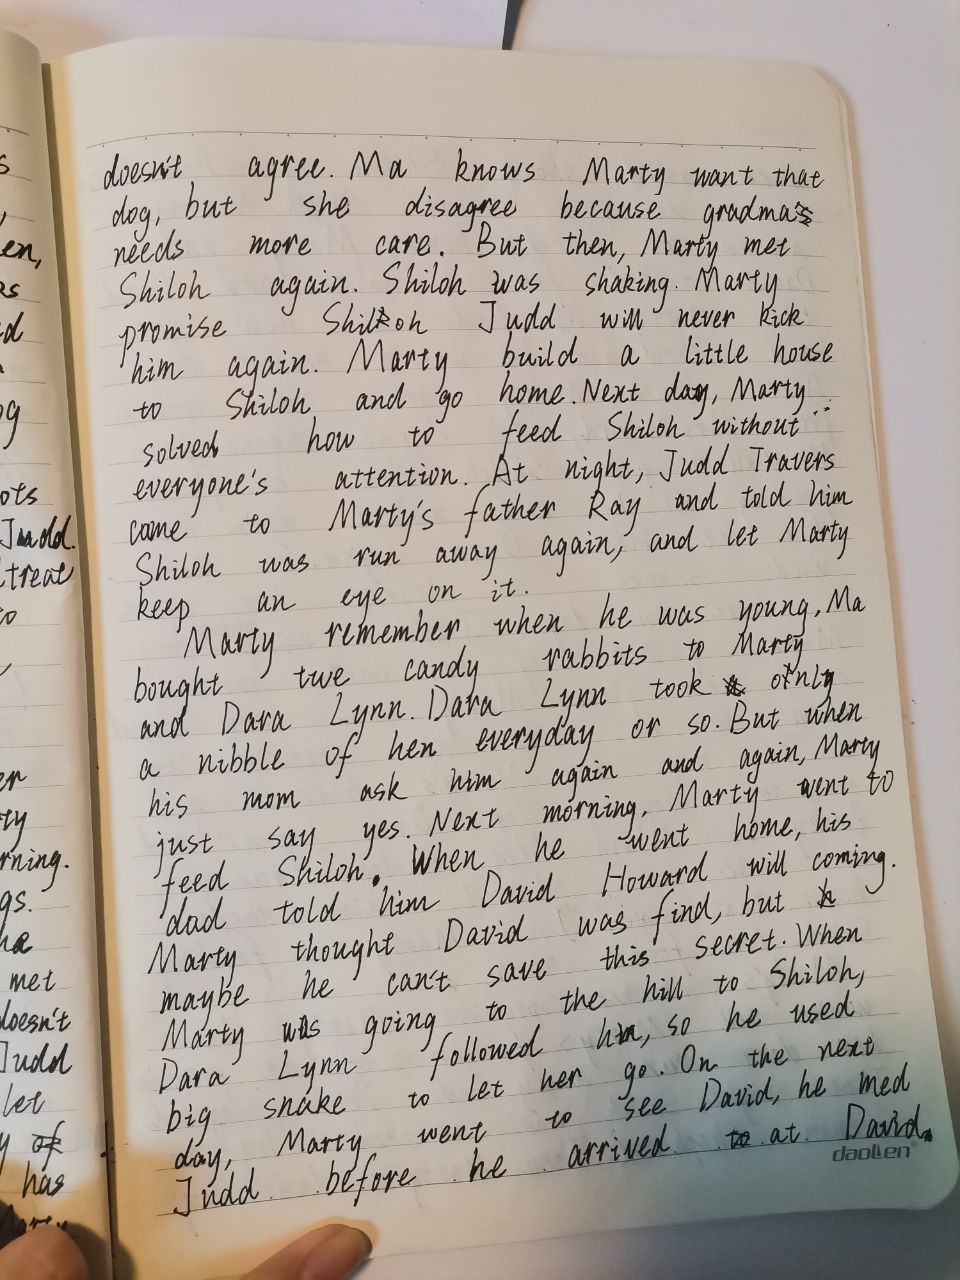 doesn't agree. Ma knows Marty want that
dog, but she disagree because gradma's
needs more care. But then, Marty met
Shiloh again. Shiloh was shaking. Marty
promise Shiloh Judd will never kick
him again. Marty build a little house
to Shiloh and go home. Next day, Marty
solved how to feed Shiloh without
everyone's attention. At night, Judd Travers
come to Marty's father Ray and told him
Shiloh was run away again, and let Marty
keep an eye on it.
Marty remember when he was young, Ma
bought twe candy rabbits to Marty
and Dara Lynn. Dara Lynn took only
a nibble of hen everyday or so. But when
his mom ask him again and again, Marty
just say yes. Next morning, Marty went to
feed Shiloh. When he went home, his
dad told him David Howard will coming.
Marty thought David was find, but
maybe he can't save this secret. When
Marty was going to the hill to Shiloh,
Dara Lynn followed him, so he used
big snake to let her go. On the next
day, Marty went to see David, he med
Judd before he arrived at David.
daolen
s
en,
as
ed
og
ots
Judd.
treat
to
er
ty
rning.
gs.
ha
met
doesn't
Judd
let
y of
has